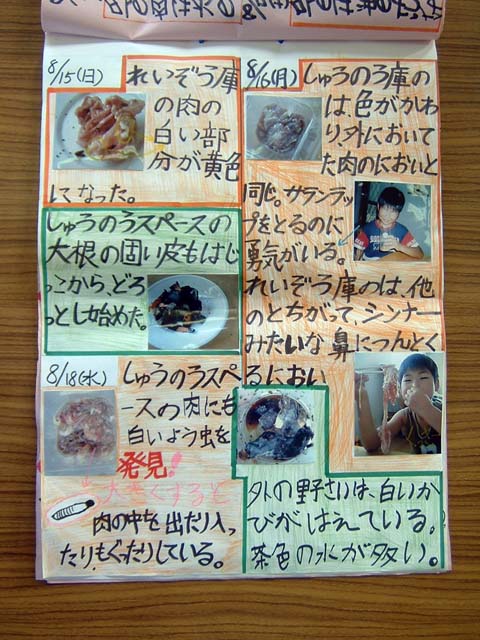 8/15(日)
れいぞう庫
の肉の
白い部
分が黄色
になった。
しゅうのうスペースの
大根の固い皮もはじ
っこから、どろ
っとし始めた。
8/18(水)
しゅうのうスペ
ースの肉にも
白いよう虫を
発見!
大きくすると
肉の中を出たり入っ
たり、もぐったりしている。
8/16(月)
しゅうのう庫の
は、色がかわ
り、外において
た肉のにおいと
同じ。サランラッ
プをとるのに
勇気がいる。
れいぞう庫のは、他
のとちがって、シンナー
みたいな鼻につんとく
るにおい
外の野さいは、白いか
びがはえている。
茶色の水が多い。